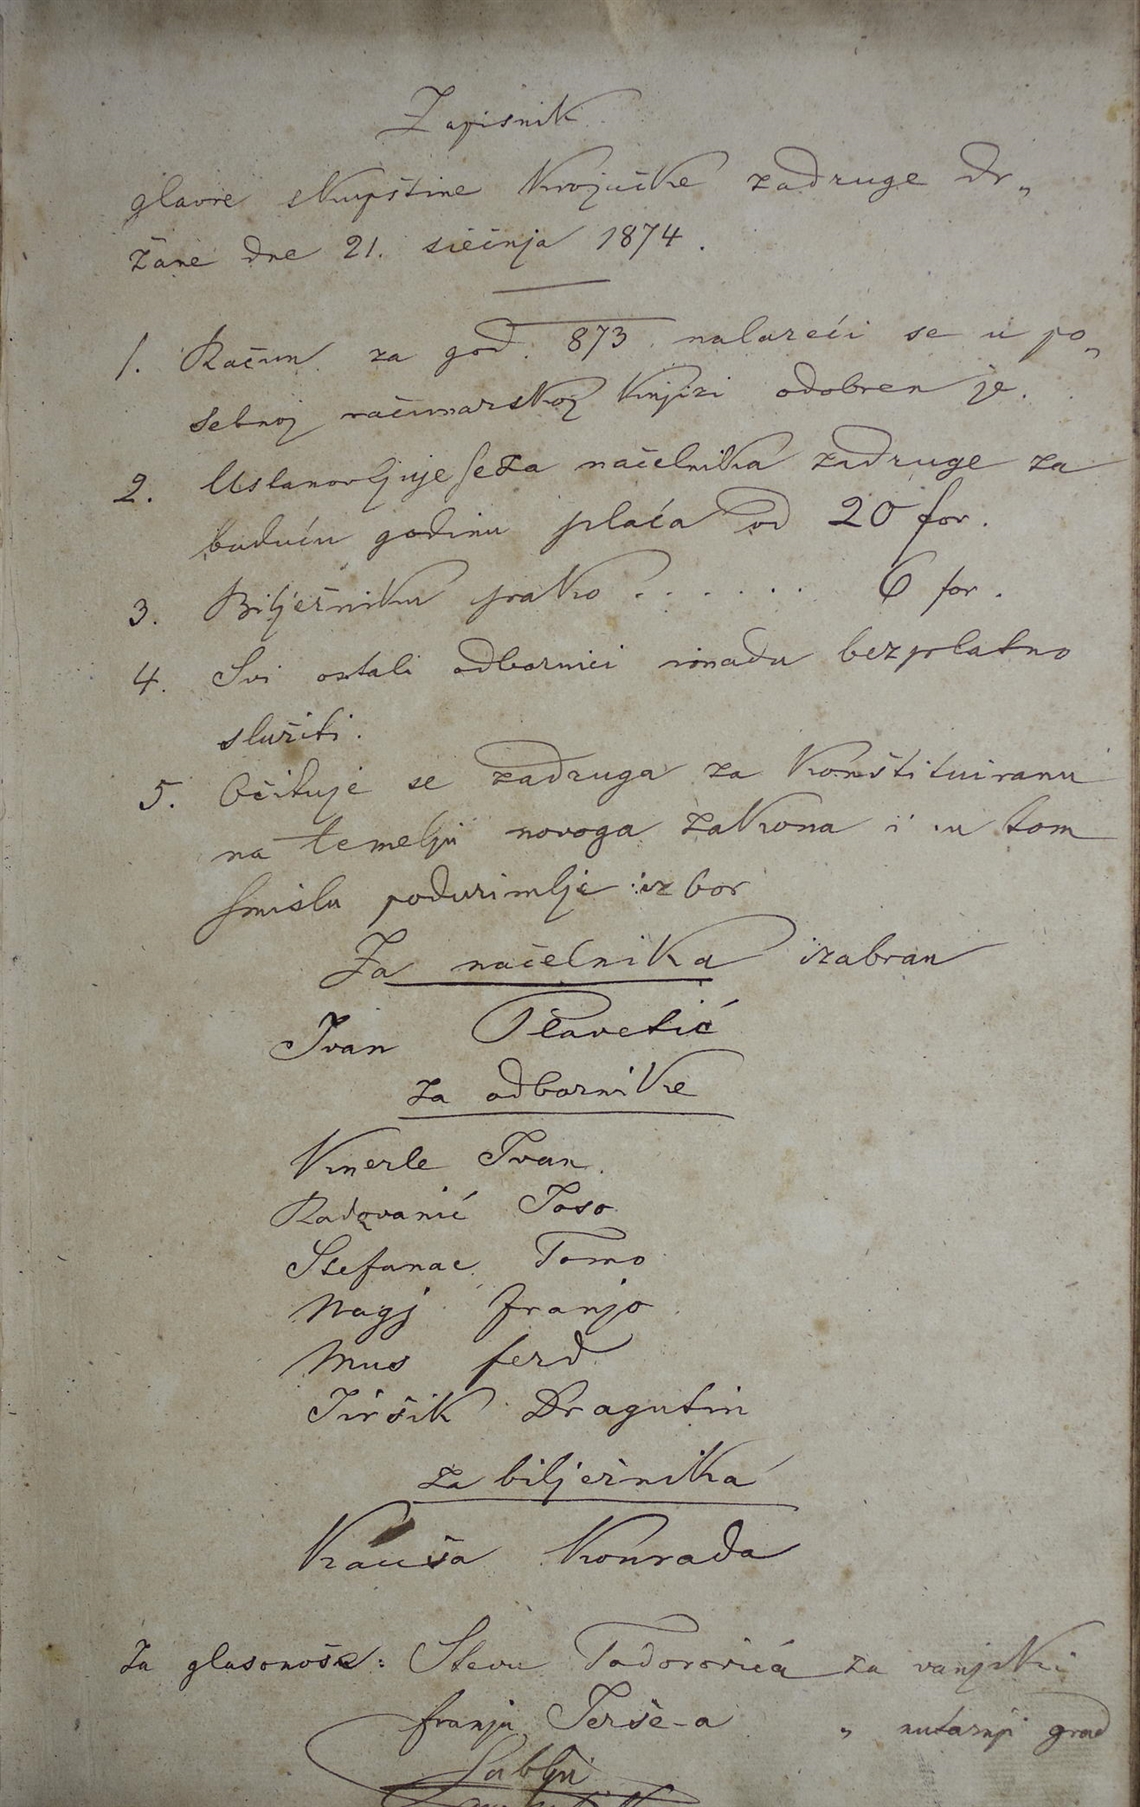 Zapisnik
glavne skupštine krojačke zadruge dr„
žane dne 21. siečnja 1874.
1. Račun za god. 873 nalazeći se u po„
sebnoj računarskoj knjizi odobren je.
2. Ustanovljuje se za načelnika zadruge za
buduću godinu plaća od 20 for.
3. Bilježniku 6 for.
4. Svi ostali odbornici imadu bezplatno
služiti.
5. Očituje se zadruga za konštituiranu
na temelju novoga zakona i u tom
smislu poduzimlje izbor
Za načelnika izabran
Ivan Plavetić
za odbornike
Knerle Ivan.
Radovanić Joso
Stefanac Tomo
Nagj Franjo
Mus Ferd.
Jiršik Dragutin
za bilježnika
Konrada
Za glasonoše: Stevu Todorovića za vanjski
Franju Terše-a „ nutarnji grad